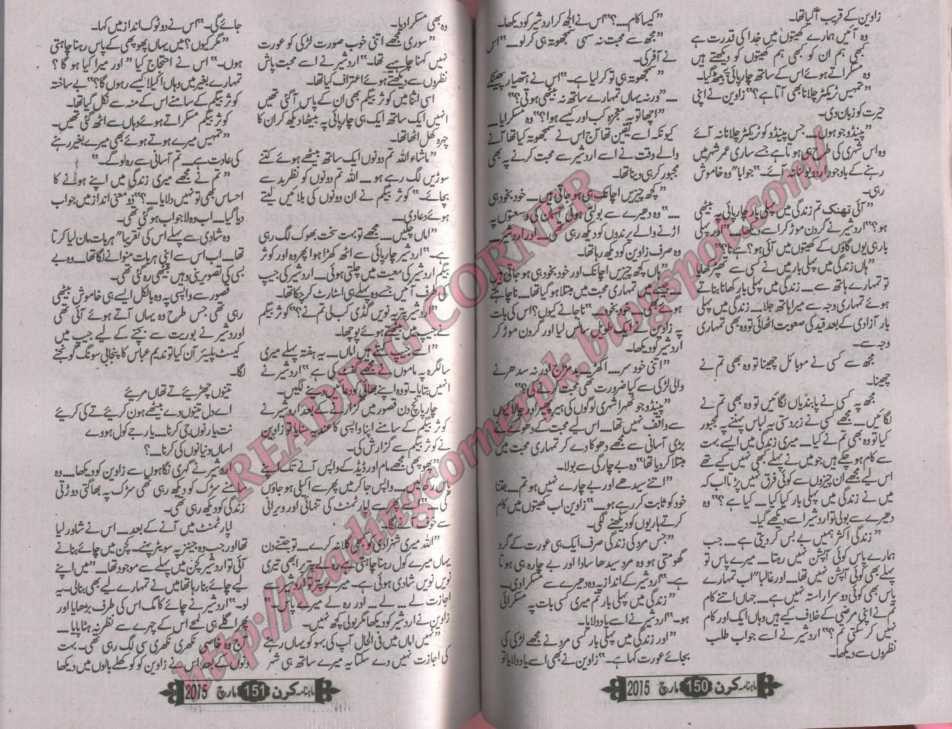 زاوین کے قریب آگیا تھا۔
وہ آئیں ہمارے کھیتوں میں خدا کی قدرت ہے
کبھی ہم ان کو کبھی ہم کھیتوں کو دیکھتے ہیں
وہ مسکراتے ہوئے اس کے ساتھ چارپائی پر بیٹھ گیا۔
"تمہیں ٹریکٹر چلانا بھی آتا ہے؟" زاوین نے اپنی
حیرت کو زبان دی۔
"پینڈو جو ہوں... جس پینڈو کو ٹریکٹر چلانا نہ آئے
وہ اس شہری کی طرح ہی ہوتا ہے جسے ساری عمر شہر میں
رہنے کے باوجود اردو بولنا نہ آئے۔" جواباً "وہ خاموش
رہی۔
"آئی تھنک تم زندگی میں پہلی بار چارپائی پہ بیٹھی
ہو؟" اردشیر نے گردن موڑ کر اسے دیکھا۔ "اور پہلی
بار ہی یوں گاؤں کے کھیتوں میں آئی ہو؟ ہے نا؟"
"ہاں زندگی میں پہلی بار میں نے کسی سے تھپڑ کھایا
تو تمہارے ہاتھ سے... زندگی میں پہلی بار کھانا بناتے
ہوئے تمہاری وجہ سے میرا ہاتھ جلا... زندگی میں پہلی
بار آزادی کے بعد قید کی صعوبت اٹھائی تو وہ بھی تمہاری
وجہ سے۔
مجھ سے کسی نے موبائل چھینا تو وہ بھی تم نے
چھینا۔
مجھ پہ کسی نے پابندیاں لگائیں تو وہ بھی تم نے
لگائیں... مجھے کسی نے زبردستی یہ لباس پہننے پہ مجبور
کیا تو وہ بھی تم نے کیا... میری زندگی میں ایسے بہت
سے کام ہو چکے ہیں جو میں نے پہلے کبھی نہیں کیے تھے
اس لیے مجھے ان چیزوں سے کوئی فرق نہیں پڑتا اب کہ
میں نے زندگی میں پہلی بار کیا کیا... کیا ہے؟" وہ
دھیرے سے بولی تو اردشیر اسے دیکھے گیا۔
"زندگی اکثر ہمیں بے بس کر دیتی ہے... جب
ہمارے پاس کوئی آپشن نہیں رہتا... میرے پاس تو
پہلے بھی کوئی آپشن نہیں تھا... اور غالباً "اب تمہارے
پاس بھی کوئی دوسرا راستہ نہیں ہے... جہاں اتنے کام
تم نے اپنی مرضی کے خلاف کیے ہیں وہاں ایک اور کام
نہیں کر سکتی تم؟" اردشیر نے اسے جواب طلب
نظروں سے دیکھا۔
"کیسا کام...؟" اس نے الجھ کر اردشیر کو دیکھا۔
"مجھ سے محبت نہ سہی سمجھوتہ ہی کر لو..." اس
نے آفر کی۔
"سمجھوتہ ہی تو کر لیا ہے۔" اس نے ہتھیار پھینکے
"...ورنہ یہاں تمہارے ساتھ نہ بیٹھی ہوتی؟"
"اچھا تو یہ معجزہ کب اور کیسے ہوا؟" وہ مسکرا دیا۔
کیونکہ اسے یقین تھا آج اس نے سمجھوتہ کیا تھا آنے
والے وقت نے اسے اردشیر سے محبت کرنے پہ بھی
مجبور کر ہی دینا تھا۔
"کچھ چیزیں اچانک ہی ہو جاتی ہیں... خود بخود ہی
"... وہ دھیرے سے بولتی ہوئی آسمان کی وسعتوں پہ
اڑنے والے پرندوں کو دیکھ رہی تھی... اور اردشیر
وہ صرف زاوین کو دیکھ رہا تھا۔
"ہاں کچھ چیزیں اچانک اور خود بخود ہی ہو جاتی ہیں
جیسے میں تمہاری محبت میں مبتلا ہو گیا تھا... نا چاہتے
ہوئے بھی..." "ناجانے کیوں؟" اس کی بات
پہ زاوین نے طویل سانس لیا اور گردن موڑ کر
اردشیر کو دیکھا۔
"اتنی خود سر... اکھڑ... بد مزاج اور نہ سدھرنے
والی لڑکی سے کیا ضرورت تھی محبت کرنے کی؟"
"پینڈو جو ٹھہرا شہری لوگوں کی ہیر پھیر اور چالاکیوں
سے واقف نہیں تھا... اس لیے محبت کے دھوکے نے
بڑی آسانی سے مجھے دھوکا دے کر تمہاری محبت میں
مبتلا کر دیا تھا" وہ بے چارگی سے بولا۔
"اتنے سیدھے اور بے چارے نہیں ہو تم... جتنا
خود کو ثابت کر رہے ہو..." زاوین اب کھیتوں میں کام
کرتے ہاریوں کو دیکھنے لگی۔
"جس مرد کی زندگی صرف ایک ہی عورت کے گرد
گھومتی ہو وہ مرد سیدھا سادا اور بے چارہ ہی ہوتا
ہے۔" اردشیر کے انداز پہ وہ دھیرے سے مسکرا دی۔
"زندگی میں پہلی بار تم میری کسی بات پہ مسکرائی
ہو۔" اردشیر نے اسے یاد دلایا۔
"اور زندگی میں پہلی بار کسی مرد نے مجھے لڑکی کی
بجائے عورت کہا ہے۔" زاوین نے بھی اسے یاد دلایا تو
ماہنامہ کرن 150 مارچ 2015
وہ بھی مسکرا دیا۔
"سوری مجھے اتنی خوب صورت لڑکی کو عورت
نہیں کہنا چاہیے تھا۔" اردشیر نے اسے محبت پاش
نظروں سے دیکھتے ہوئے اعتراف کیا تھا۔
اسی اثنا میں کوثر بیگم بھی ان کے پاس آ گئی تھیں
انہیں ایک ساتھ ایک ہی چارپائی پہ بیٹھا دیکھ کر ان کا
چہرہ کھل اٹھا تھا۔
"ماشاء اللہ تم دونوں ایک ساتھ بیٹھے ہوئے کتنے
سوہنے لگ رہے ہو... اللہ تم دونوں کو نظر بد سے
بچائے۔" کوثر بیگم نے ان دونوں کی بلائیں لیتے
ہوئے دعا دی۔
"اماں چلیں... مجھے تو بہت سخت بھوک لگ رہی
ہے۔" اردشیر چارپائی سے اٹھ کھڑا ہوا پھر وہ اور کوثر
بیگم اردشیر کی معیت میں چلتی ہوئی... اردشیر کی جیپ
کی طرف آئیں جسے وہ پہلے ہی اسٹارٹ کر چکا تھا۔
"اردشیر پتر یہ نویں گڈی کب لی تم نے؟" کوثر بیگم
نے جیپ میں بیٹھتے ہوئے پوچھا۔
ہفتہ پہلے میری
سالگرہ پہ ماموں نے دی ہے" اردشیر نے
انہیں بتایا۔
چار پانچ دن قصور میں گزارنے کے بعد اردشیر نے
کوثر بیگم کے سامنے اپنا واپسی کا عندیہ سنایا تو زاوین
نے کوثر بیگم سے گزارش کی۔
"پھوپھی مجھے مام اور ڈیڈ کے واپس آنے تک اپنے
پاس رکھ لیں... واپس جا کر میں پھر سے اکیلی ہو جاؤں
گی... اپارٹمنٹ کی تنہائی اور ویرانی
سے خوف آنے لگا
"اللہ میری شہزادی کو کبھی تنہا نہ کرے... تو جتنے دن
یہاں میرے کول رہنا چاہتی ہے رہ لے پر ابھی تیری
نویں نویں شادی ہوئی ہے... میرے پتر اردشیر سے
اجازت لے لے... اور رہ لے میرے پاس۔"
زاوین نے اردشیر کو دیکھا مگر بولی کچھ نہیں۔
"نہیں اماں میں فی الحال آپ کی بہو کو یہاں رہنے
کی اجازت نہیں دے سکتا یہ میرے ساتھ ہی شہر
جائے گی۔" اس نے دو ٹوک انداز میں کہا۔
"مگر کیوں؟ میں یہاں پھوپھی کے پاس رہنا چاہتی
ہوں۔" اس نے احتجاج کیا "اور میرا کیا ہو گا؟
تمہارے بغیر میں وہاں اکیلا کیسے رہوں گا؟" بے ساختہ
کوثر بیگم کے سامنے اس کے منہ سے نکل گیا تھا۔
کوثر بیگم مسکراتے ہوئے وہاں سے اٹھ گئی تھیں۔
"تمہیں میرے ہوتے ہوئے بھی میرے بغیر رہنے
کی عادت ہے... تم آسانی سے رہ لو گے۔"
"تم نے مجھے میری زندگی میں اپنے ہونے کا
احساس کبھی تو نہیں دلایا...؟" ذو معنی انداز میں جواب
دیا گیا... اب وہ لاجواب ہو گئی تھی۔
وہ شادی سے پہلے اس کی تقریباً "ہر بات مان لیا کرتا
تھا... اب اس سے اپنی ہر بات منوانے لگا تھا... وہ بے
بسی کی تصویر بنی وہیں بیٹھی رہ گئی تھی۔
قصور سے واپسی پہ وہ بالکل ایسے ہی خاموش بیٹھی
رہی تھی جس طرح وہ یہاں آتے ہوئے آئی تھی
اردشیر نے بوریت سے بچنے کے لیے جیپ میں
کیسٹ پلیئر آن کیا تو ندیم عباس کا پنجابی سونگ گونجنے
لگا۔
تینوں چھڑیئے تے تھاں مریئے
اے دل تینوں دے بیٹھے ہون کریئے تے کی کریئے
نت یار نوں جی کرنا... یار جے کول ہووے
اساں دنیا نوں کی کرنا...؟
اردشیر نے گہری نگاہوں سے زاوین کو دیکھا... وہ
سامنے سڑک کو دیکھ رہی تھی سڑک پہ بھاگتی دوڑتی
زندگی کو دیکھ رہی تھی۔
اپارٹمنٹ میں آنے کے بعد... اس نے شاور لیا
تھا اور جب وہ جینز پہ سویٹر پہنے... کچن میں چائے بنانے
آئی تو اردشیر کچن میں پہلے سے موجود تھا... "میں اپنے
لیے چائے بنا رہا تھا میں نے تمہارے لیے بھی بنالی۔ یہ
لو۔" اردشیر نے چائے کا مگ اس کی طرف بڑھایا اور
پھر اگلے ہی لمحے اس کے چہرے سے نظر نہ ہٹا پایا...
آج وہ خاصی نکھری نکھری سی لگ رہی تھی... بہت
دنوں کے بعد اس نے زاوین کو کھلے بالوں میں دیکھا
ماہنامہ کرن 151 مارچ 2015
READING CORNER
http://readingcornerpk.blogspot.com/